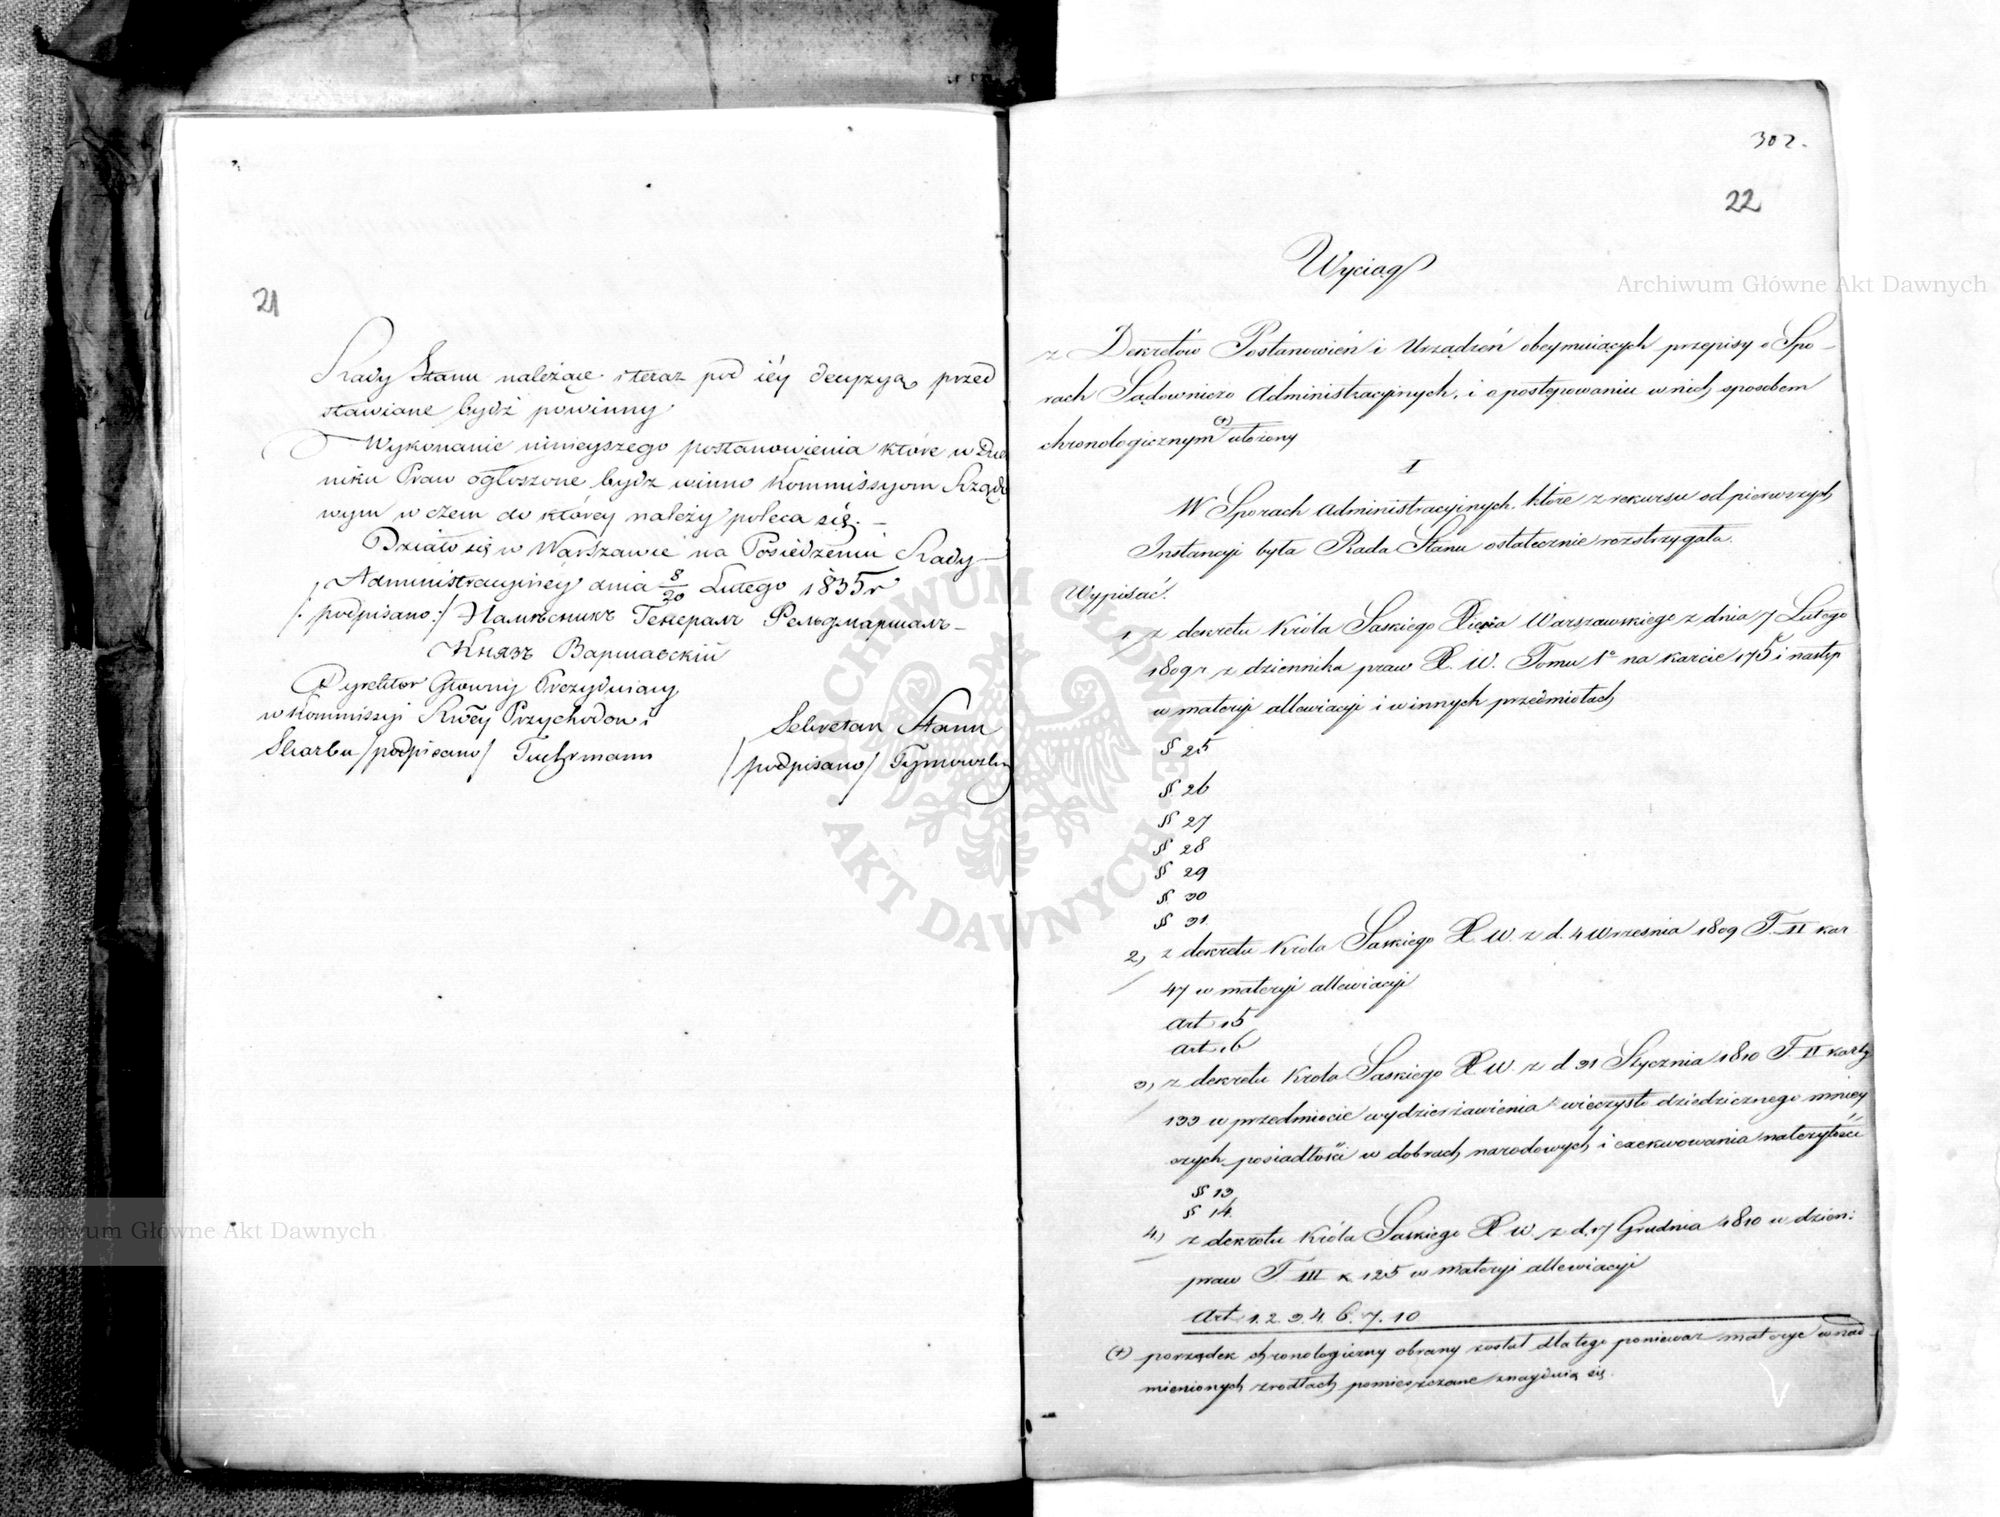 21
Rady Stanu należące i teraz pod iéy decyzyą przed
stawiane bydź powinny
Wykonanie ninieyszego postanowienia które w Dzie
niku Praw ogłoszone bydz winno Kommissyom Rządo
wym w czem do którey należy poleca się. —
Działo się w Warszawie na Posiedzeniu Rady
Administracyiney dnia 8/20 Lutego 1835 r
/: podpisano :/ Намѣсникъ Генералъ Фельдмаршалъ
Князь Варшавскій
Dyrektor Główny Prezyduiący
w Kommissyi Rwéy Przychodow i
Skarbu /podpisano/ Fuhrmann
Sekretarz Stanu
/podpisano/ Tymowski
302.
22
Wyciąg
z Dekretów Postanowień i Urządzeń obeymuiących przepisy o Spo-
rach Sądowniczo Administracyjnych, i o postępowaniu w nich sposobem
chronologicznym (+) ułożony
I
W Sporach Administracyjnych, które z rekursu od pierwszych
Instancyi była Rada Stanu ostatecznie rozstrzygała.
Wypisać.
1, z dekretu Króla Saskiego Xięcia Warszawskiego z dnia 7 Lutego
1809 r z dziennika praw X. W. Tomu 1º na karcie 175 i następ
w materyi allewiacyi i w innych przedmiotach
§ 25
§ 26
§ 27
§ 28
§ 29
§ 30
§ 31
2, z dekretu Króla Saskiego X. W. z d. 4 Września 1809 T. II kar
47 w materyi allewiacyi
Art 15
Art 16
3, z dekretu Króla Saskiego X W. z d 31 Stycznia 1810 T. II karty
133 w przedmiocie wydzierżawienia wieczysto dziedzicznego mniey
szych posiadłości w dobrach narodowych i exekwowania należytości
§ 13
§ 14
4, z dekretu Króla Saskiego X W. z d. 17 Grudnia 1810 w dzien:
praw T. III k 125 w materyi allewiacyi
Art 1. 2. 3. 4. 6. 7. 10
(+) porządek chronologiczny obrany został dla tego ponieważ materye w nad
mienionych zrodłach pomieszczane znayduią się.
Archiwum Główne Akt Dawnych
ARCHIWUM GŁÓWNE AKT DAWNYCH
Archiwum Główne Akt Dawnych